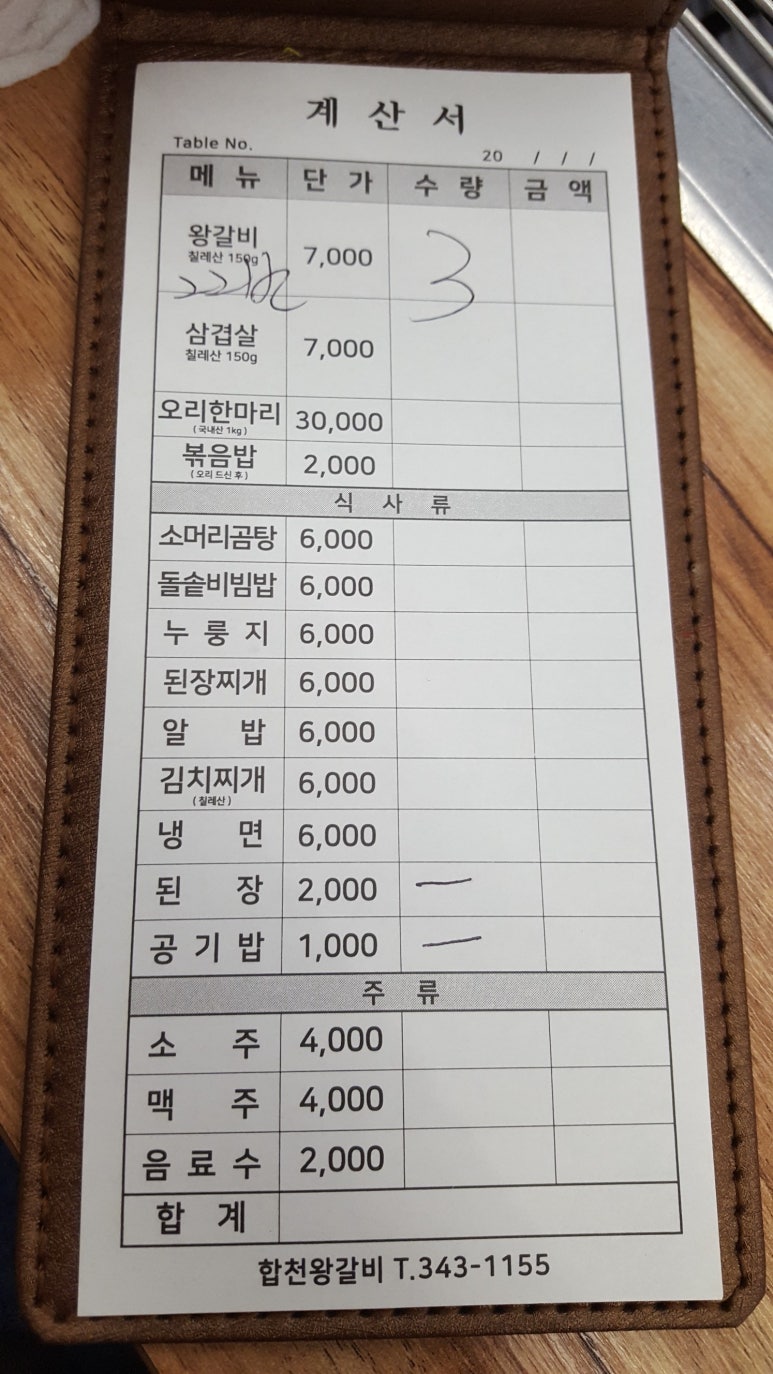 계 산 서
Table No. 20 / / /
메 뉴 단 가 수 량 금 액
왕갈비 7,000 3
칠레산 150g
삼겹살 7,000
칠레산 150g
오리한마리 30,000
(국내산 1kg)
볶음밥 2,000
(오리 드신 후)
식 사 류
소머리곰탕 6,000
돌솥비빔밥 6,000
누 룽 지 6,000
된장찌개 6,000
알 밥 6,000
김치찌개 6,000
(칠레산)
냉 면 6,000
된 장 2,000 一
공 기 밥 1,000 一
주 류
소 주 4,000
맥 주 4,000
음 료 수 2,000
합 계
합천왕갈비 T.343-1155